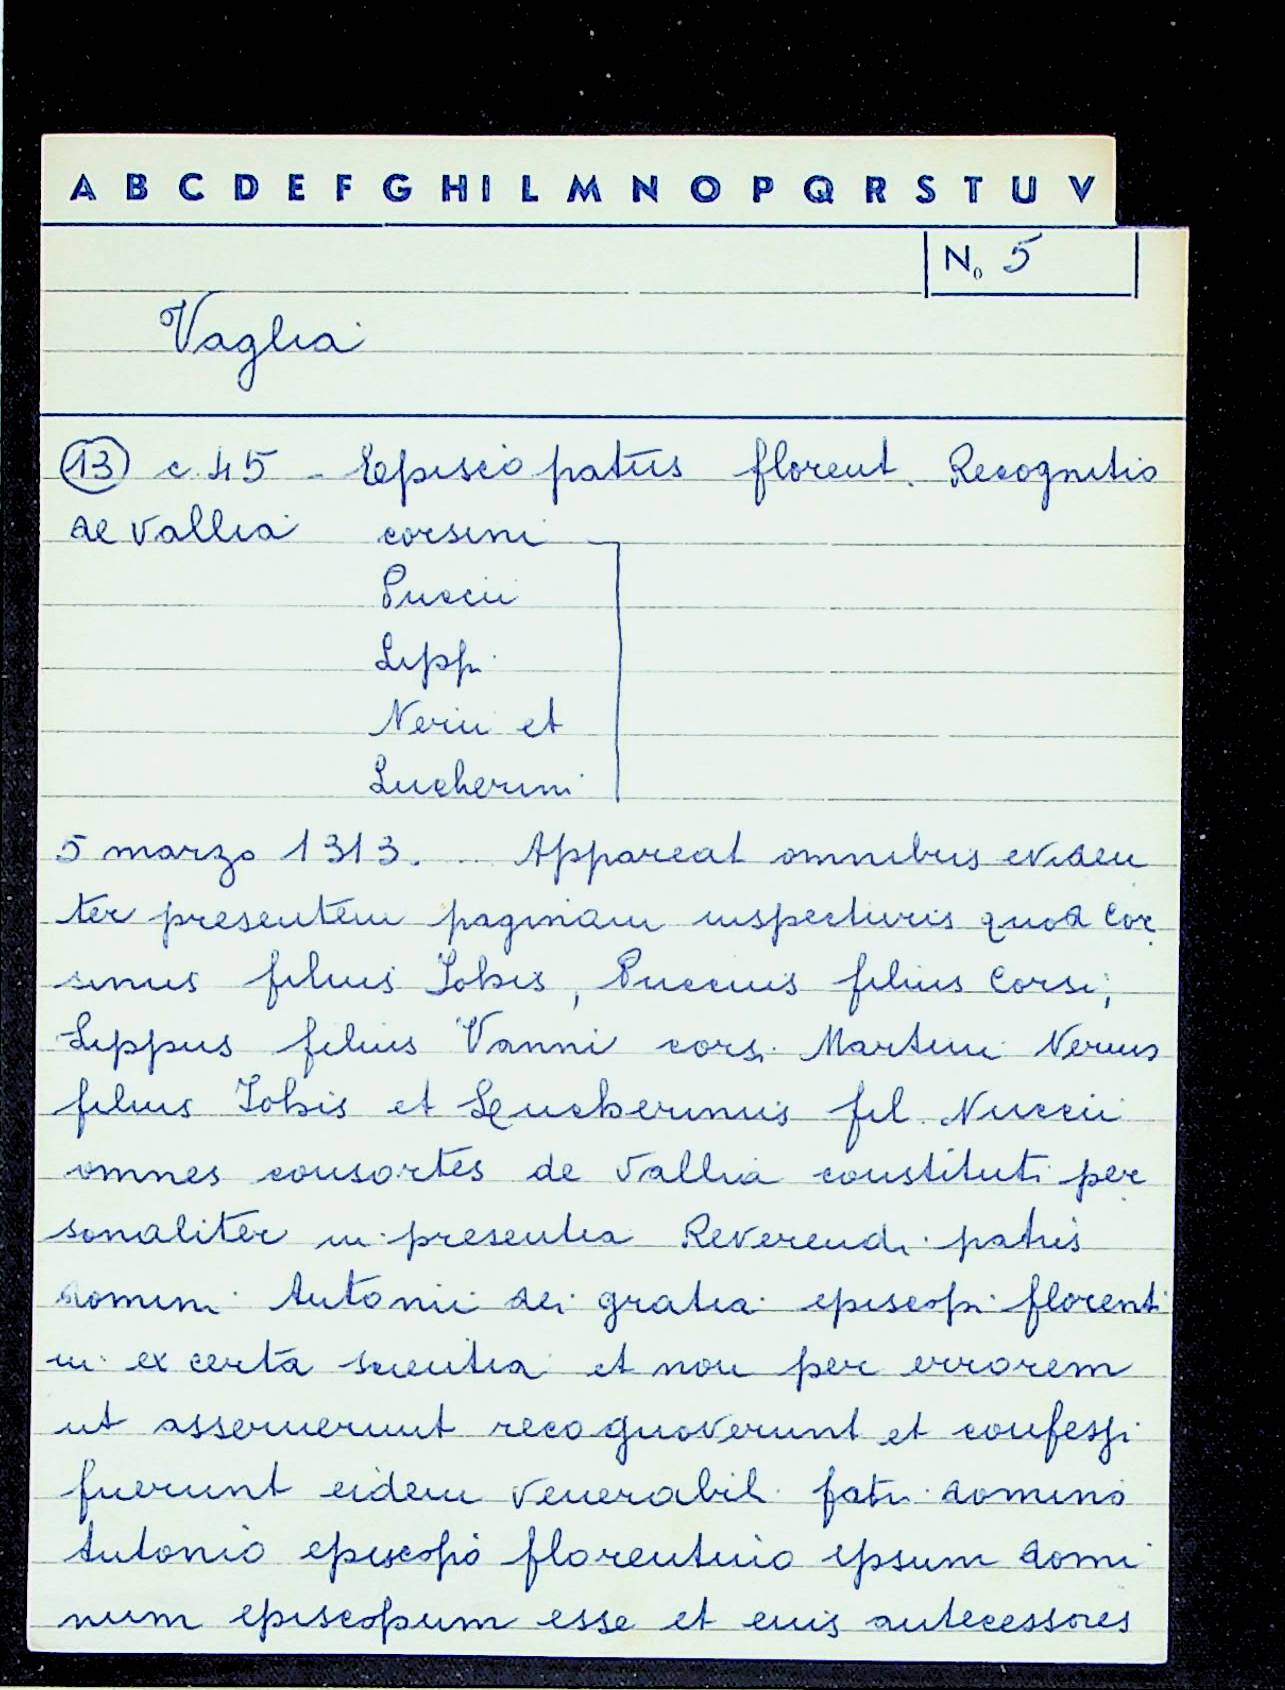 A B C D E F G H I L M N O P Q R S T U V
No 5
Vaglia
13 c. 45 - Episcopatus florent. Recognitio
de Vallia corsini
Puccii
Lippi
Nerii et
Lucherini
5 marzo 1313. ... Appareat omnibus eviden
ter presentem paginam inspecturis quod Cor
sinus filius Iohis, Puccius filius Corsi,
Lippus filius Vanni cors. Martini Nerius
filius Iohis et Lucherinus fil. Nuccii
omnes consortes de Vallia constituti per
sonaliter in presentia Reverendi patris
domini Antonii dei gratia episcopi florenti
ni ex certa scientia et non per errorem
ut asseruerunt recognoverunt et confessi
fuerunt eidem venerabil. patri domino
Antonio episcopo florentino ipsum domi
num episcopum esse et eius antecessores